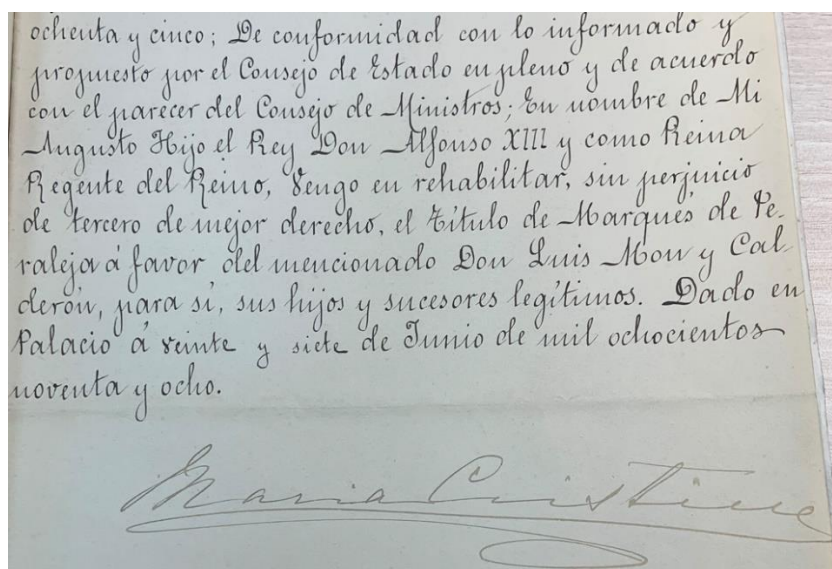 ochenta y cinco; De conformidad con lo informado y
propuesto por el Consejo de Estado en pleno y de acuerdo
con el parecer del Consejo de Ministros; En nombre de Mi
Augusto Hijo el Rey Don Alfonso XIII y como Reina
Regente del Reino, Vengo en rehabilitar, sin perjuicio
de tercero de mejor derecho, el Título de Marqués de Pe-
raleja á favor del mencionado Don Luis Mon y Cal-
derón, para sí, sus hijos y sucesores legítimos. Dado en
Palacio á veinte y siete de Junio de mil ochocientos
noventa y ocho.
Maria Cristina